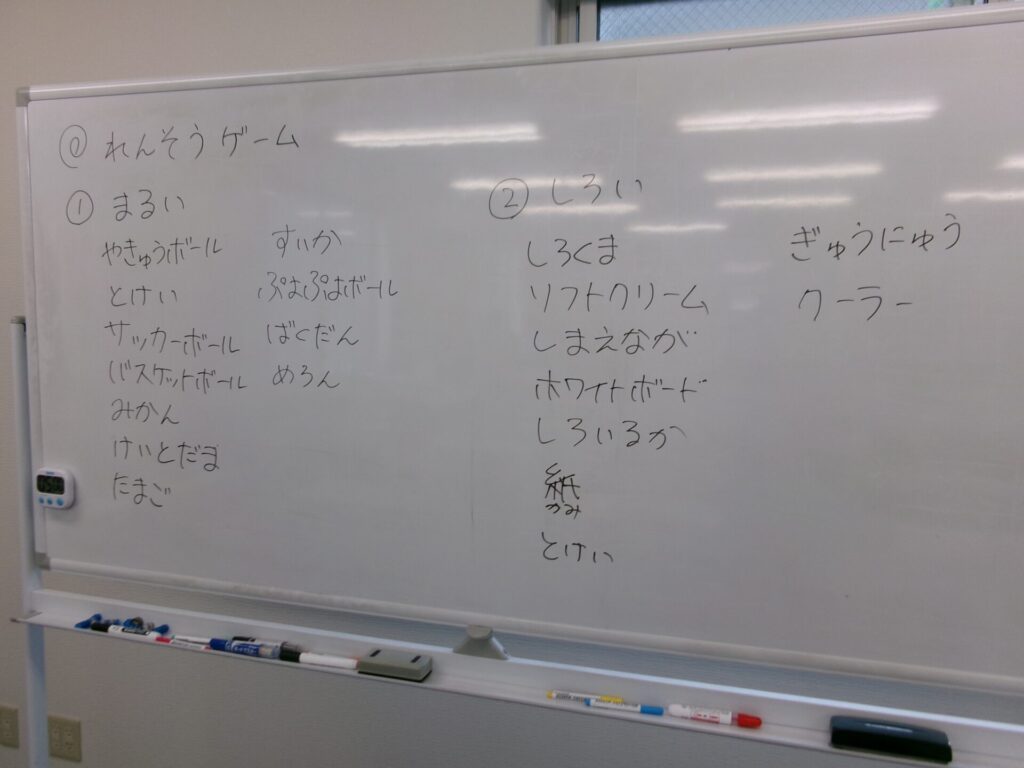 ◎ れんそうゲーム
① まるい
やきゅうボール
とけい
サッカーボール
バスケットボール
みかん
けいとだま
たまご
すいか
ぷよぷよボール
ばくだん
めろん
② しろい
しろくま
ソフトクリーム
しまえなが
ホワイトボード
しろいるか
紙
かみ
とけい
ぎゅうにゅう
クーラー